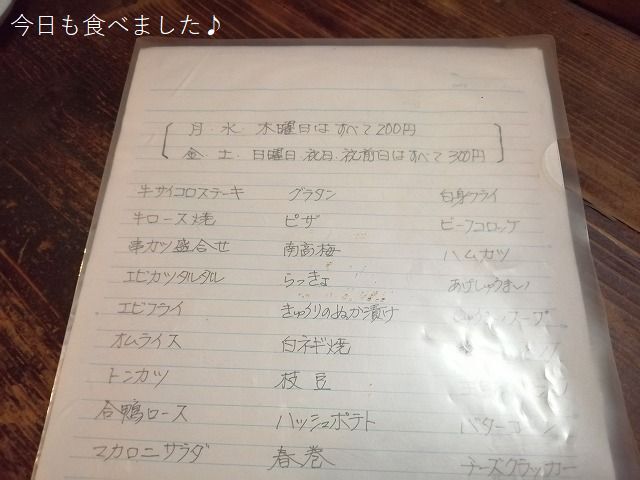 今日も食べました♪
月・水・木曜日はすべて200円
金・土・日曜日・祝日・祝前日はすべて300円
牛サイコロステーキ グラタン 白身フライ
牛ロース焼 ピザ ビーフコロッケ
串カツ盛合せ 南高梅 ハムカツ
エビカツタルタル らっきょ あげしゅうまい
エビフライ きゅうりのぬか漬け
オムライス 白ネギ焼
トンカツ 枝豆
合鴨ロース ハッシュポテト バターコーン
マカロニサラダ 春巻 チーズクラッカー